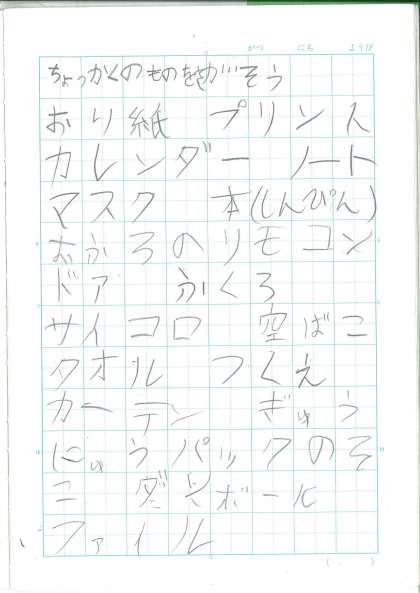 がつ にち ようび
ちょっかくのものをさがそう
おり紙 プリンス
カレンダー ノート
マスク 本(しんぴん)
おふろのリモコン
ドア ふくろ
サイコロ 空ばこ
タオル つくえ
カーテン ぎゅう
にゅうパックのそ
こ ダンボール
ファイル
( . )